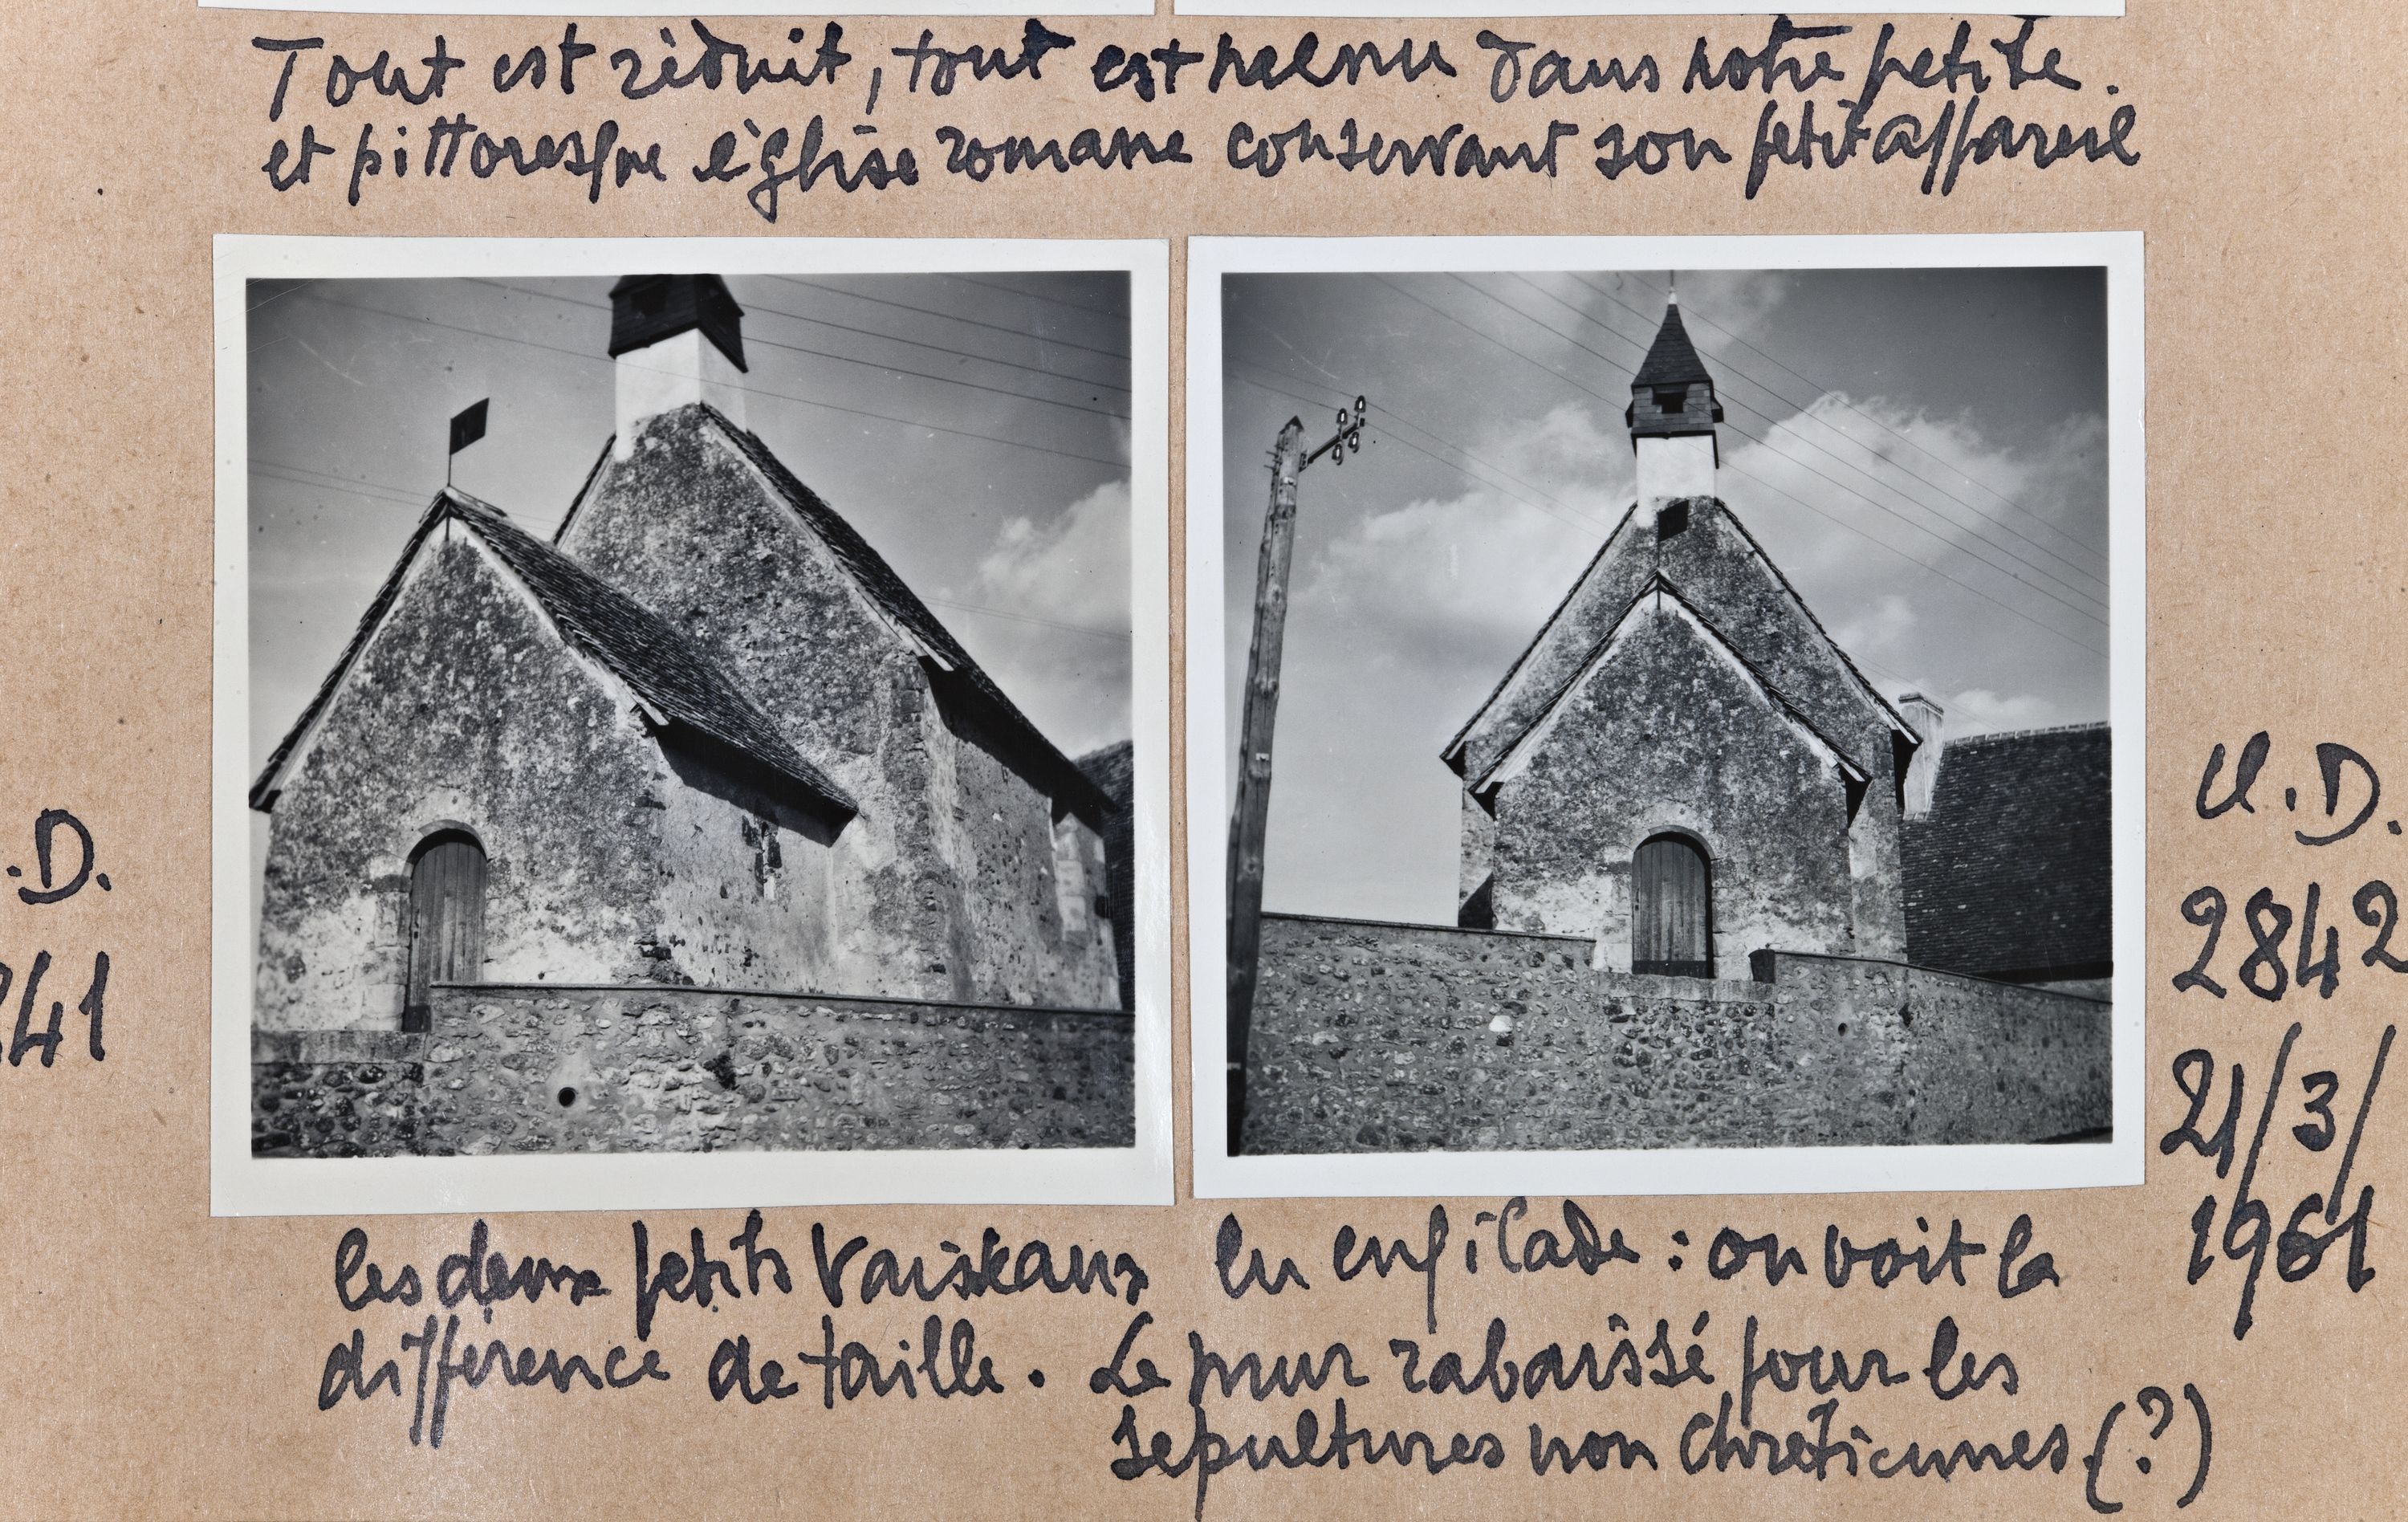 Tout est réduit, tout est menu dans notre petite.
et pittoresque église romane conservant son petit appareil
.D.
41
U.D.
2842
21/3/
1961
les deux petits vaisseaux en enfilade : on voit la
différence de taille. Le mur rabaissé pour les
sepultures non chretiennes.(?)